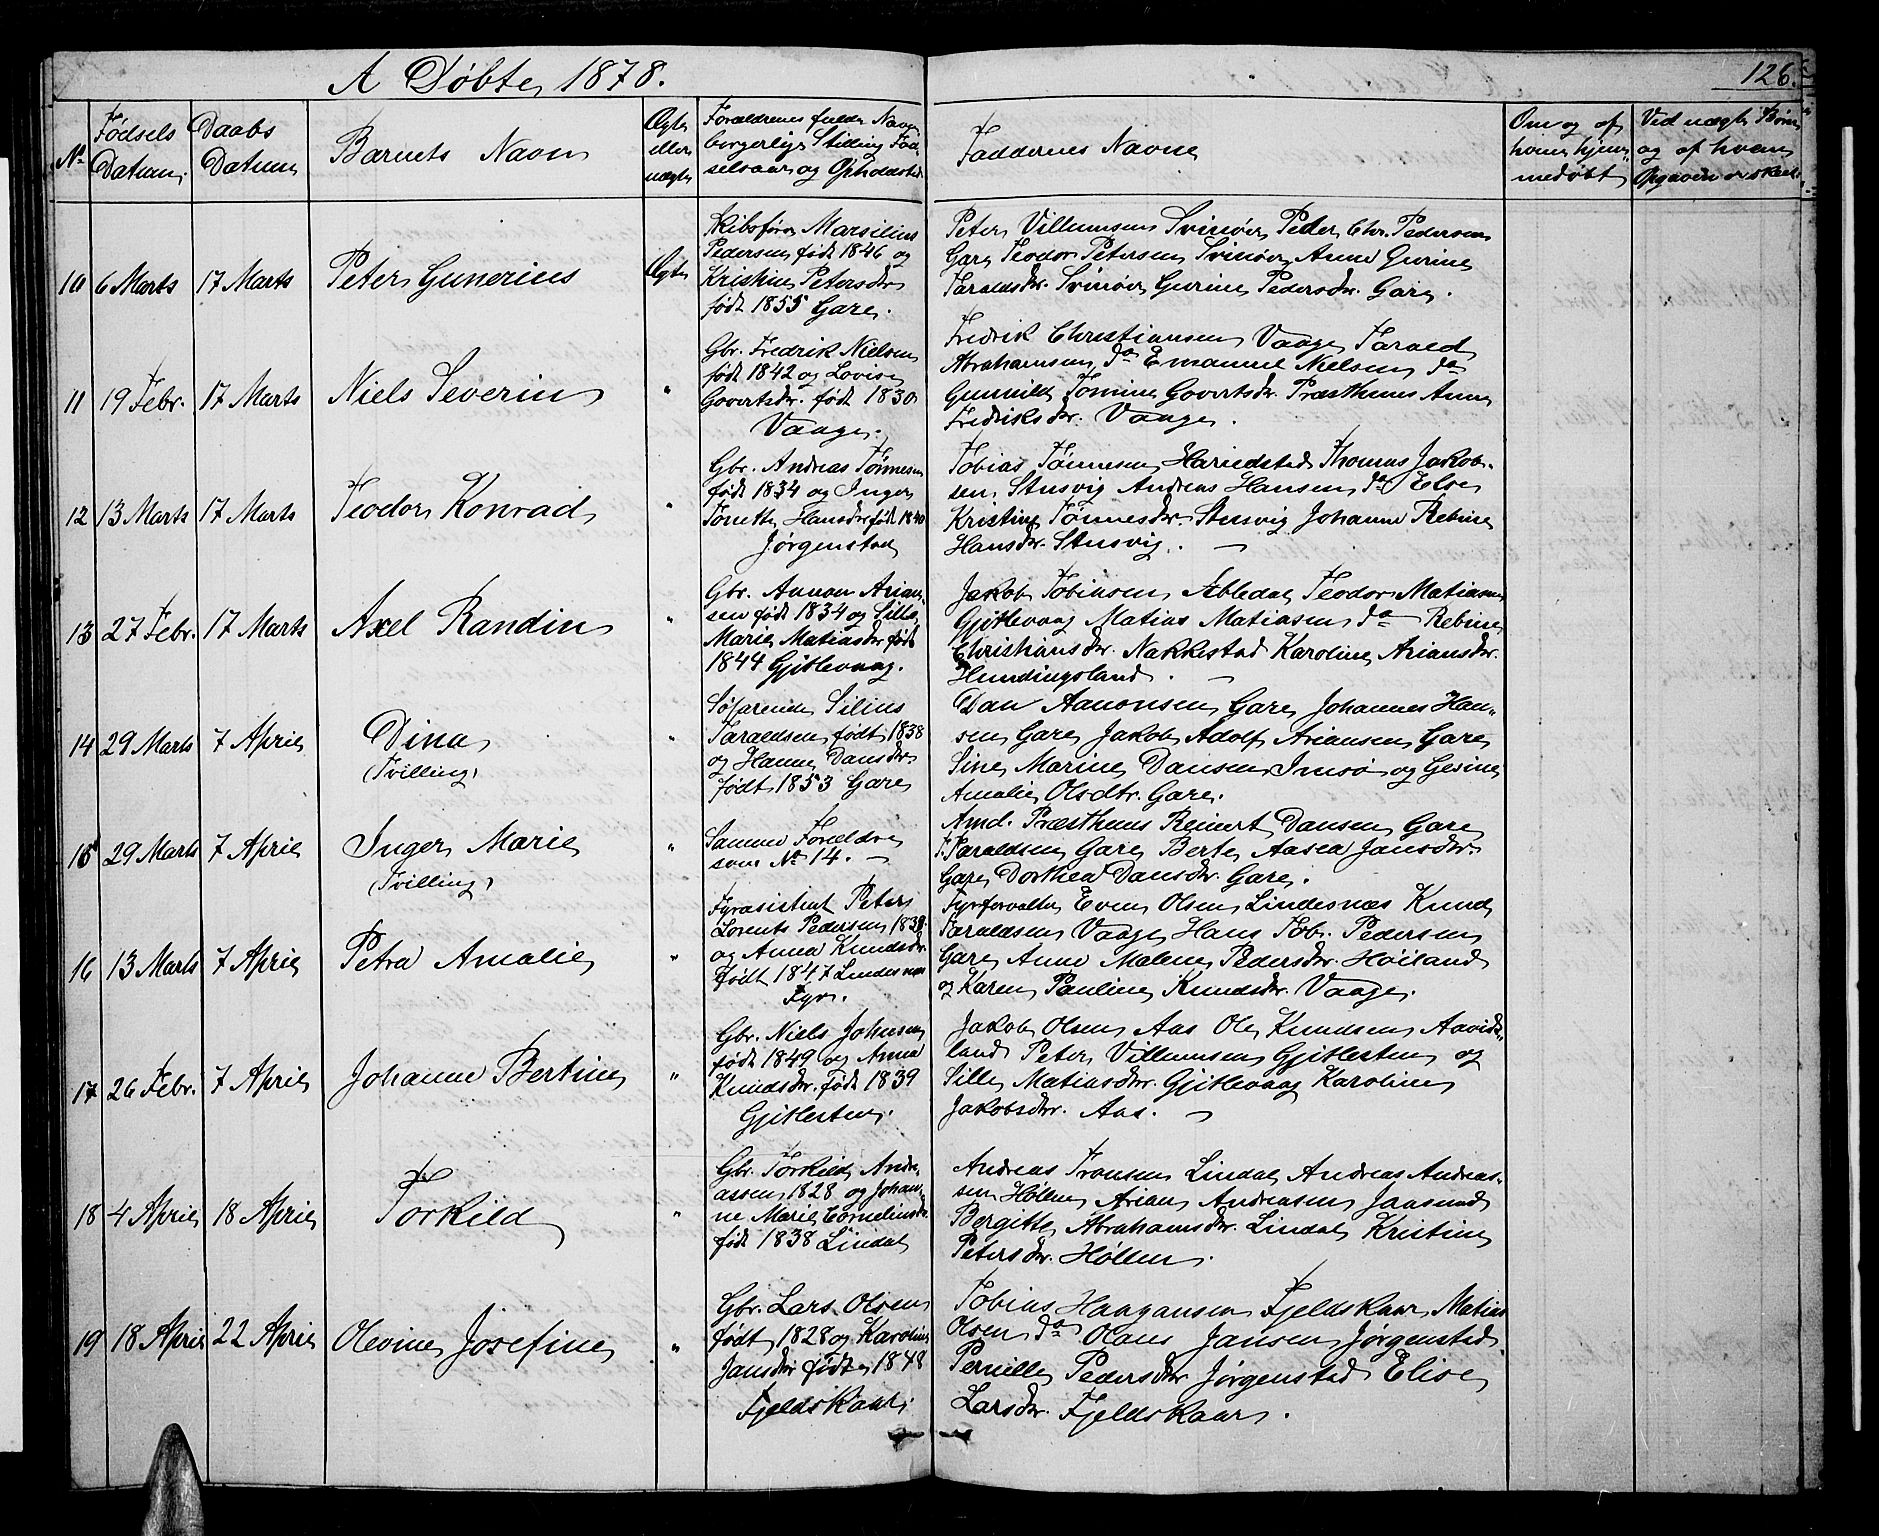 A Døbte 1878.
126.
No
Fødsels Datum
Daabs Datum
Barnets Navn
Ægte eller uægte
Forældrenes fulde Navn borgerlige Stilling Fødselsaar og Opholdsted
Faddernes Navne
Om og af hvem hjemmedøbt
Ved uægte Børn og af hvem Opgaven er skeet
10 6 Marts 17 Marts Peter Gunerius Ægte
Skibsfører Marsilius
Pedersen født 1846 og
Kristine Petersdtr
født 1855 Gare.
Peter Villumsen Svinør Peder Chr. Pedersen
Gare Teodor Petersen Svinør Anne Gurine
Taraldsdtr. Svinør Gurine Pedersdtr. Gare.
11 19 Febr. 17 Marts Niels Severin "
Gbr. Fredrik Nielsen
født 1842 og Lovise
Govertsdtr. født 1830
Vaage.
Fredrik Christiansen Vaage Tarald
Abrahamsen do Emanuel Nielsen do
Gunnild Tomine Govertsdtr. Præsthuus Anne
Fredriksdtr. Vaage.
12 13 Marts 17 Marts Teodor Konrad "
Gbr. Andreas Tønnesen
født 1834 og Inger
Tonette Hansdtr født 1840
Jørgenstad
Tobias Tønnesen Jakob-
sen Stusvig Andreas Hansen do
Kristine Tønnesdtr. Stusvig Johanne Rebine
Hansdtr. Stusvig. —
13 27 Febr. 17 Marts Axel Randin "
Gbr. Aanon Arian-
sen født 1834 og Sille
Marie Matiasdtr født
1844 Gjitlevaag.
Jakob Tobiasen Teodor Matiasen
Gjitlevaag Matias Matiasen do Rebine
Christiansdtr. Nakkestad Karoline Ariansdtr.
Hundingsland. —
14 29 Marts 7 April Dina "
(Tvilling)
Søfarende Silius
Taraldsen født 1838
og Hanne Dansdtr
født 1853 Gare
Dan Aanonsen Gare Johannes Han-
sen Gare Jakob Adolf Ariansen Gare
Sine Marine Dansen Imsø og Gesine
Amalie Olsdtr. Gare.
15 29 Marts 7 April Inger Marie "
(Tvilling)
Samme Forældre
som No 14. —
Amd. Præsthuus Reinert Dansen Gare
T. Taraldsen Gare Berte Aasea Jansdtr.
Gare Dorthea Dansdtr. Gare.
16 13 Marts 7 April Petra Amalie "
Fyrasistent Peter
Lorents Pedersen 1839
og Anna Knudsdtr.
født 1847 Lindesnæs
Fyr.
Fyrforvalter Even Olsen Lindesnæs Knud
Taraldsen Vaage Hans Tob. Pedersen
Gare Anne Malene Pedersdtr. Høiland
og Karen Pauline Knudsdtr. Vaage.
17 26 Febr. 7 April Johanne Bertine "
Gbr. Niels Johnsen
født 1849 og Anna
Knudsdtr. født 1839
Gjitlesten.
Jakob Olsen Aas Ole Knudsen Aavids-
land Peter Villumsen Gjitlesten og
Sille Matiasdtr. Gjitlevaag Karoline
Jakobsdtr. Aas. —
18 4 April 18 April Torkild "
Gbr. Torkild Andre-
assen 1828 og Johan-
ne Marie Corneliusdtr.
født 1838 Lindal
Andreas Tronsen Lindal Andreas Andreas-
sen Høllen Arian Andreasen Jaasund
Bergitte Abrahamsdtr. Lindal Kristine
Petersdtr. Høllen.
19 18 April 22 April Olevine Josefine "
Gbr. Lars Olsen
født 1828 og Karoline
Jansdtr født 1848
Fjeldskaar.
Tobias Haagansen Fjeldskaar Matias
Olsen do Olaus Jansen Jørgenstad
Pernille Pedersdtr Jørgenstad Elise
Larsdtr. Fjeldskaar.